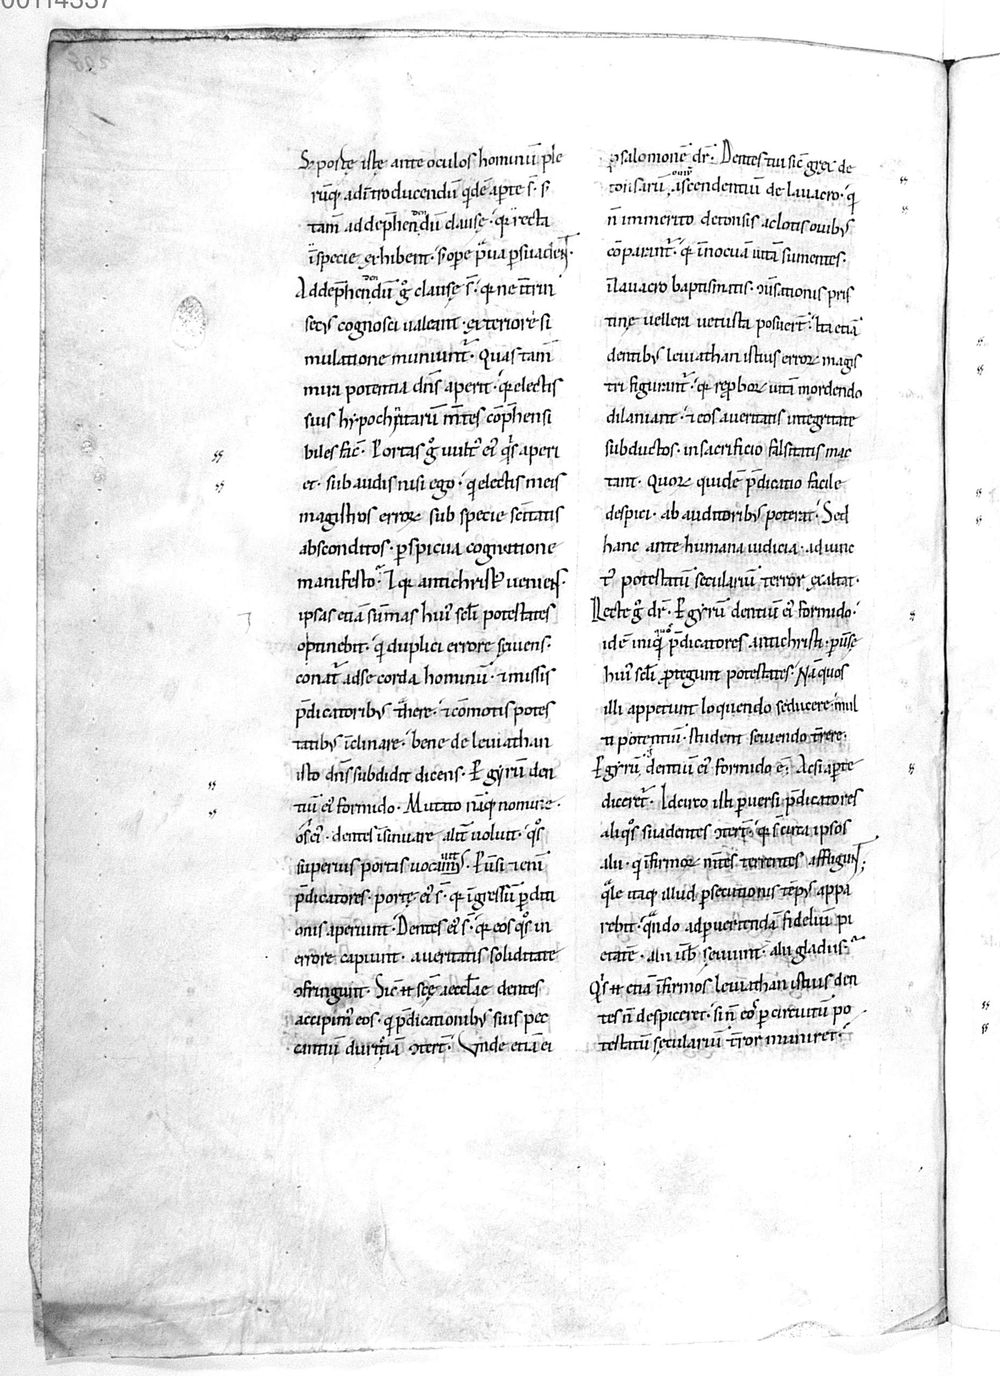 00114337
S; portę istę ante oculos hominū ple
rūq; ad ītroducendū qdē apte s̄· s;
tam̄ ad dephendendū clausę· qr recta
ī specie exhibent· s; ope praua psuadent·
Ad dephendendū g̊ clausę s̄· qr ne ītrin
secus cognosci ualeant· exteriore si
mulatione muniunt̄· Quas tam̄
mira potentia dn̄s aperit· qr electis
suis hypochritarū m̄tes cōphensi
biles fac̄· Portas g̊ uult' ei' qs aperi
et· subaudis nisi ego· q electis meis
magistros erroꝝ sub specie sc̄itatis
absconditos· pspicua cognitione
manifesto· Et qr antichrist' ueniens·
ipsas etiā sūmas hui' sc̄li potestates
optinebit· q duplici errore seuiens·
conat̄ ad se corda hominū· ⁊ missis
p̄dicatoribus t̄here· ⁊ cōmotis potes
tatibus īclinare· bene de leuiathan
isto dn̄s subdidit dicens· P gyrū den
tiū ei' formido· Mutato nāq; nomine·
dentes īsinuare alit̄ uoluit· qs
superius portas uocauit· Puersi ⁊enī
p̄dicatores· portę ei' s̄· qr īgressū pditi
onis aperiunt· Dentes ei' s̄· qr eos qs in
errore capiunt· a ueritatis soliditate
ꝯfringunt· Sic ⁊ sc̄ę aeccl̄ae dentes
accipim' eos· q p̄dicationibus suis pec
cantiū duritiā ꝯterunt· Vnde etiā ei
p salomonē dr̄· Dentes tui sic̄ grex de
tonsarū ouiū ascendentiū de lauacro· q
n̄ inmerito detonsis ac lotis ouibus
cōparant̄· qr īnocuā uitā sumentes·
ī lauacro baptismatis· ꝯuersationis pris
tinę uellera uetusta posuert̄· Ita etiā
dentibus leuiathan istius erroꝝ magis
tri figurant̄· qr reproboꝝ uitā mordendo
dilaniant· ⁊ eos a ueritatis integritate
subductos· in sacrificio falsitatis mac
tant· Quoꝝ quidē p̄dicatio facile
despici· ab auditoribus poterat· Sed
hanc ante humana iudicia· adiunc
t' potestatū seculariū terror exaltat·
Recte g̊ dr̄· P gyrū dentiū ei' formido·
idē iniquos p̄dicatores antichristi· puerse
hui' sc̄li ptegunt potestates· Nā quos
illi appetunt loquendo seducere· mul
ti potentiū· student seuiendo t̄rere·
P gyrū g dentiū ei' formido ē· Ac si apte
diceret̄· Idcirco isti puersi p̄dicatores
aliqs suadentes ꝯterunt· qr s̄ circa ipsos
alii· q īfirmoꝝ m̄tes terrentes affligunt;
qle itaq; illud psecutionis tēpus appa
rebit· qn̄do ad puertendā fideliū pi
etatē· alii ūb seuiunt· alii gladiis·
Qs ⁊ etiā īfirmos leuiathan istius den
tes n̄ despiceret· si n̄ eos p circuitū po
testatū sęculariū t̄ror muniret·